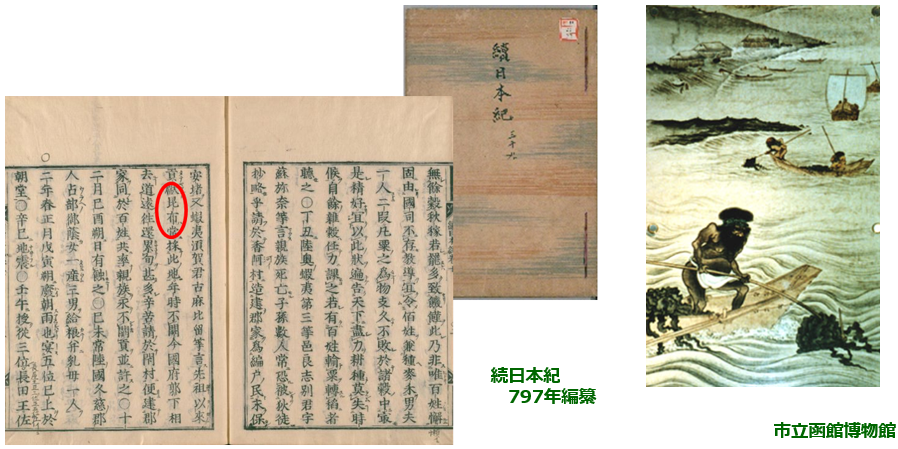 續日本紀
無餘穀秋稼若罷多致饑饉此乃非唯百姓懈
固由國司不存教導宜令佰姓兼種麥禾男夫
一人二段凡粟之爲物支久不敗於諸穀中最
是精好宜以此狀遍告天下盡力耕種莫失時
候自餘雜穀任力課之若有百姓輸粟轉稻者
聽之〇丁丑陸奥蝦夷第三等邑良志別君宇
蘇弥奈等言親族死亡子孫數人常恐被狄徒
抄略乎請於香河村造建郡家爲編戶民永保
安堵又蝦夷須賀君古麻比留等言先祖以來
貢獻昆布常採此地年時不闕今國府郭下相
去道遠往還累旬甚多辛苦請於閇村便建郡
家同於百姓共率親族永不闕貢並許之〇十
二月己酉朔日有蝕之〇己未常陸國久慈郡
人占部御蔭女一產三男給粮并乳母一人
二年春正月戊寅朔廢朝雨也宴五位已上於
朝堂〇辛巳地震〇壬午授從三位長田王佐
続日本紀
797年編纂
市立函館博物館